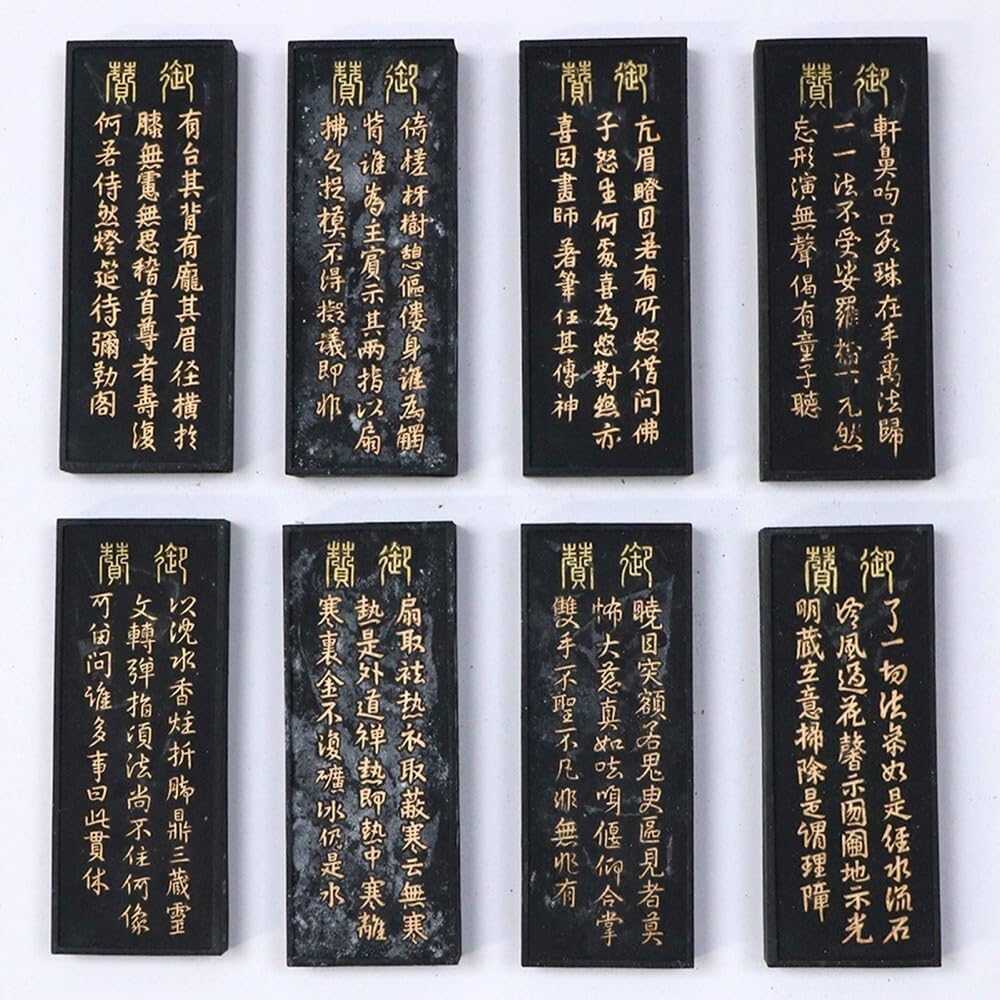 御贊
有台其背有龐其眉径橫於
膝無慮無思稽首尊者壽復
何若侍然燈筵待彌勒閣
御贊
倚槎枒樹憩傴僂身誰為觸
背誰為主賓示其兩指以扇
拂之捉模不得擬議即非
御贊
亢眉瞪目若有所怒借問佛
子怒生何處喜為怒對怒亦
喜因畫師著筆任其傳神
御贊
軒鼻呴口數珠在手萬法歸
一一法不受娑羅樹下兀然
忘形演無聲偈有童子聽
御贊
以沈水香炷折腳鼎三藏靈
文轉彈指頃法尚不住何像
可留問誰多事曰此貫休
御贊
扇取祛熱衣取蔽寒云無寒
熱是外道禪熱即熱中寒離
寒裏金不復礦冰仍是水
御贊
目突額若鬼史區見者莫
怖大慈真如呿偃仰合掌
雙手不聖不凡非無非有
御贊
了一切法如是經水流石
冷風過花馨示圓地示光
明藏立意掃除是謂理障